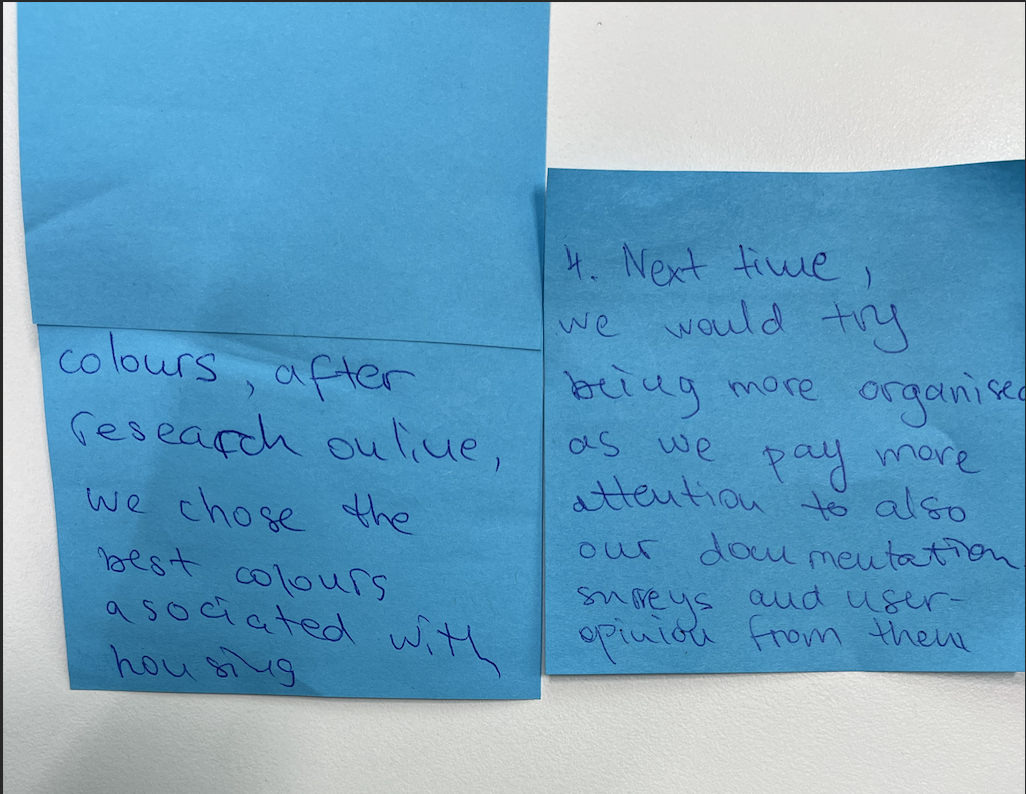 colours, after
research online,
we chose the
best colours
asociated with
housing
4. Next time,
we would try
being more organised
as we pay more
attention to also
our documentation
surveys and user-
opinion from them